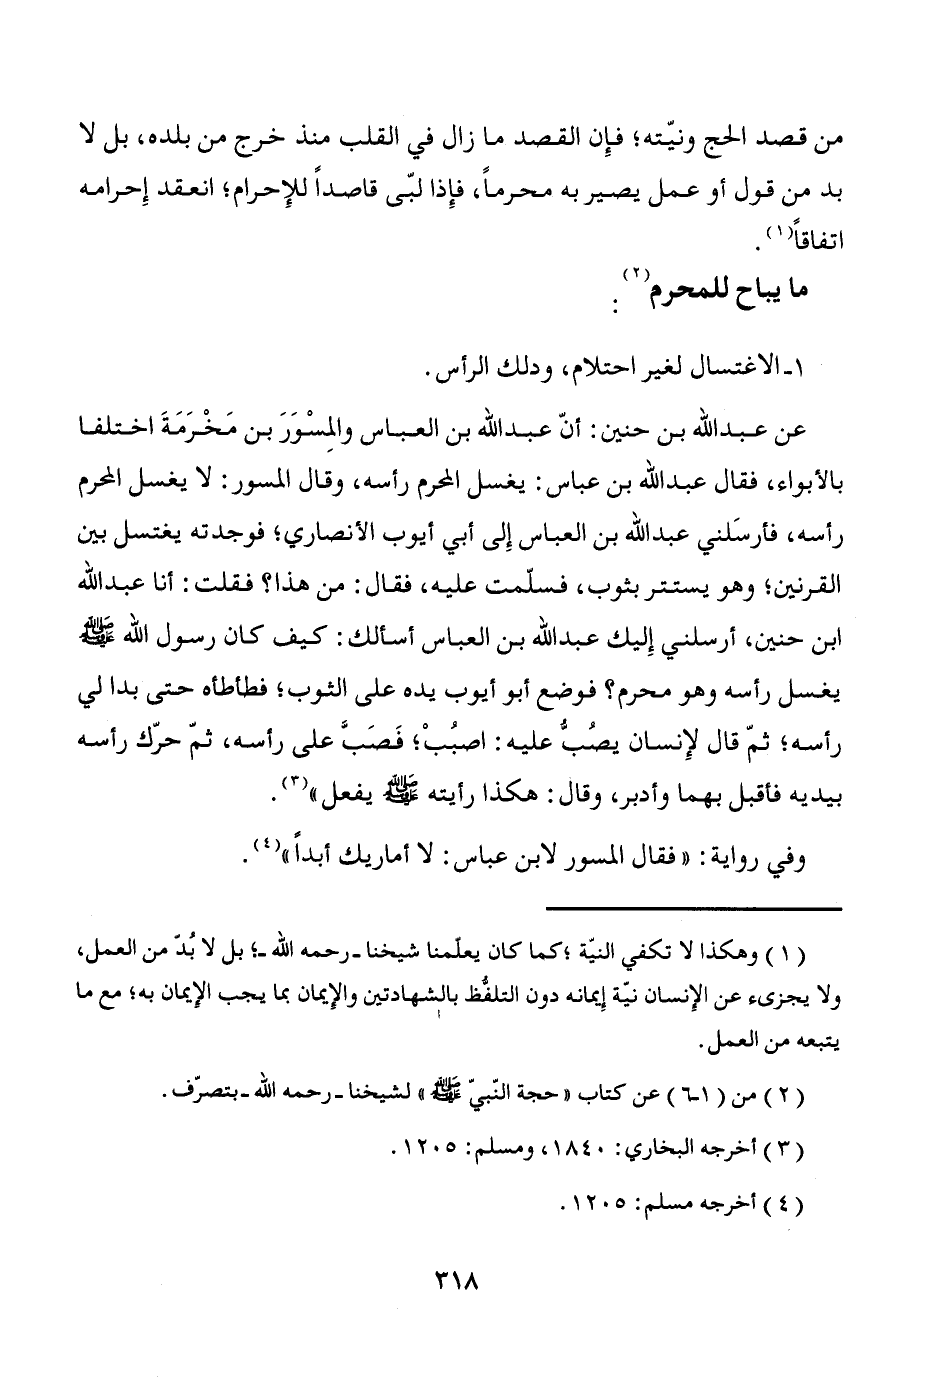 من قصد الحج ونيّته؛ فإن القصد ما زال في القلب منذ خرج من بلده، بل لا
بد من قول أو عمل يصير به محرماً، فإذا لبّى قاصداً للإحرام؛ انعقد إحرامه
اتفاقاً(١).
ما يباح للمحرم(٢):
١ـ الاغتسال لغير احتلام، ودلك الرأس.
عن عبدالله بن حنين: أنّ عبدالله بن العباس والمِسْوَرَ بن مَخْرَمَةَ اختلفا
بالأبواء، فقال عبدالله بن عباس: يغسل المحرم رأسه، وقال المسور: لا يغسل المحرم
رأسه، فأرسَلني عبدالله بن العباس إلى أبي أيوب الأنصاري؛ فوجدته يغتسل بين
القرنين؛ وهو يستتر بثوب، فسلّمت عليه، فقال: من هذا؟ فقلت: أنا عبدالله
ابن حنين، أرسلني إليك عبدالله بن العباس أسألك: كيف كان رسول الله ﷺ
يغسل رأسه وهو محرم؟ فوضع أبو أيوب يده على الثوب؛ فطأطأه حتى بدا لي
رأسه؛ ثمّ قال لإنسان يصُبُّ عليه: اصبُبْ؛ فَصَبَّ على رأسه، ثمّ حرّك رأسه
بيديه فأقبل بهما وأدبر، وقال: هكذا رأيته ﷺ يفعل»(٣).
وفي رواية: «فقال المسور لابن عباس: لا أماريك أبداً»(٤).
(١) وهكذا لا تكفي النيّة ؛كما كان يعلّمنا شيخنا ـ رحمه الله ـ؛ بل لا بُدّ من العمل،
ولا يجزىء عن الإنسان نيّة إيمانه دون التلفُّظ بالشهادتين والإيمان بما يجب الإيمان به؛ مع ما
يتبعه من العمل.
(٢) من (١ـ٦) عن كتاب «حجة النّبيّ ﷺ» لشيخنا ـ رحمه الله ـ بتصرّف.
(٣) أخرجه البخاري: ١٨٤٠، ومسلم: ١٢٠٥.
(٤) أخرجه مسلم: ١٢٠٥.
٣١٨